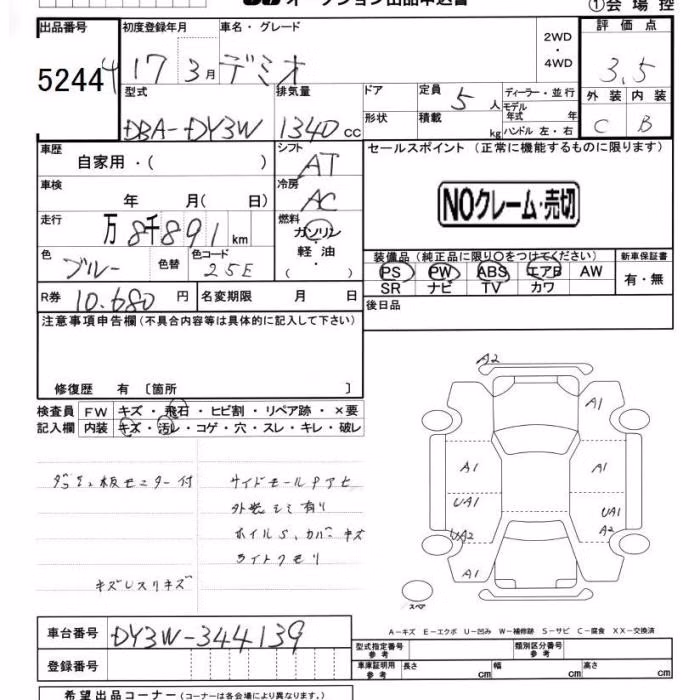 オークション出品申込書
①会場控
出品番号 初度登録年月 車名・グレード 2WD・4WD 評価点
5244 17 3月 デミオ 3.5
型式 排気量 ドア 定員 5人 ディーラー・並行 外装 内装
DBA-DY3W 1340cc 形状 積載 kg モデル年式 年 C B
ハンドル 左・右
車歴 シフト セールスポイント (正常に機能するものに限ります)
自家用・( ) AT
車検 冷房
年 月( 日) AC NOクレーム・売切
走行 燃料
万8千891km ガソリン
軽油
・
( )
色 色替 色コード 装備品(純正品に限り〇をつけてください) 新車保証書
ブルー 25E PS PW ABS エアB AW 有・無
SR ナビ TV カワ
R券 10.680円 名変期限 月 日 後日品
注意事項申告欄(不具合内容等は具体的に記入して下さい)
修復歴 有 〔箇所 〕
検査員 FW キズ・飛石・ヒビ割・リペア跡・×要
記入欄 内装 キズ・汚レ・コゲ・穴・スレ・キレ・破レ
A2
A1
A1 A1
UA1 UA1
UA2 A2
A1
スペア
サイドモールPアヒ
外装シミ有り
ホイルS、カバーキズ
ライトクモリ
A-キズ E-エクボ U-凹み W-補修跡 S-サビ C-腐食 XX-交換済
車台番号 DY3W-344139
型式指定番号 参考 類別区分番号 参考
登録番号 車庫証明用 参考 長さ cm 幅 cm 高さ cm
希望出品コーナー(コーナーは各会場により異なります。)